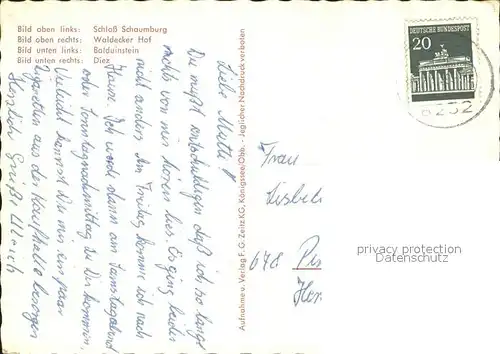 Bild oben links: Schloß Schaumburg
Bild oben rechts: Waldecker Hof
Bild unten links: Balduinstein
Bild unten rechts: Diez
Liebe Mutti!
Du mußt entschuldigen daß ich so lange
nichts von mir hören lies. Es ging leider
nicht anders. Am Freitag komme ich nach
Hause. Ich werde dann am Samstagabend
oder Sonntagnachmittag zu Dir kommen.
Vielleicht kannst Du mir ein paar
Zigaretten aus der Kaufhalle besorgen
Herzlich Grüßt Ulrich
Aufnahme u. Verlag F. G. Zeitz KG, Königssee/Obb. - Jeglicher Nachdruck verboten
DEUTSCHE BUNDESPOST
20
6252
Frau
Lisbe
678 Pi
privacy protection
Datenschutz